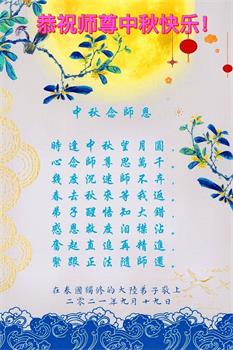 恭祝师尊中秋快乐!
中秋念師恩
時逢中秋望月圓,
心念師尊思萬千。
幾度沉迷師不弃,
春去秋來等我返。
弟子醒悟知大錯,
惑怨故友再
奮起直追精進,
緊跟正法隨師還。
在泰國獨修的大陸弟子敬上
二零二一年九月十九日